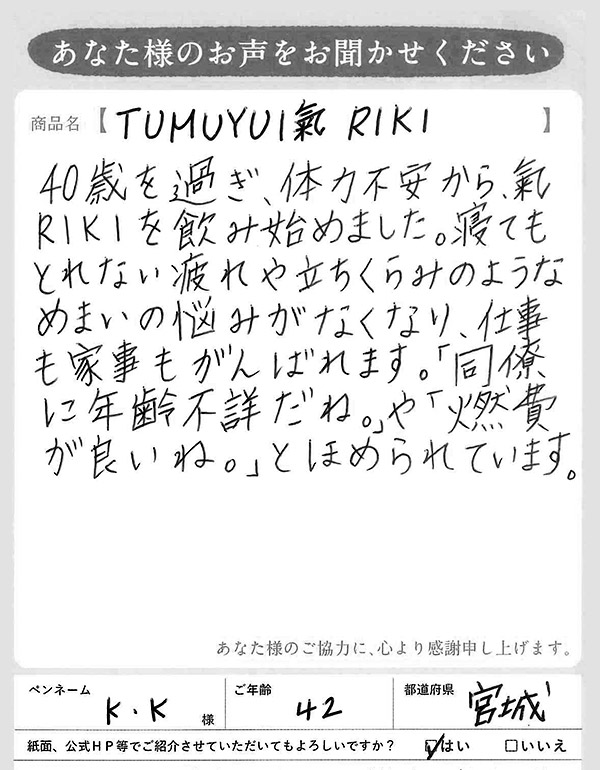 あなた様のお声をお聞かせください
商品名【TUMUYUI氣 RIKI】
40歳を過ぎ、体力不安から、氣
RIKIを飲み始めました。寝ても
とれない疲れや立ちくらみのような
めまいの悩みがなくなり、仕事
も家事もがんばれます。「同僚
に年齢不詳だね。」や「燃費
が良いね。」とほめられています。
あなた様のご協力に、心より感謝申し上げます。
ペンネーム K.K 様 ご年齢 42 都道府県 宮城
紙面、公式HP等でご紹介させていただいてもよろしいですか? ☑はい □いいえ